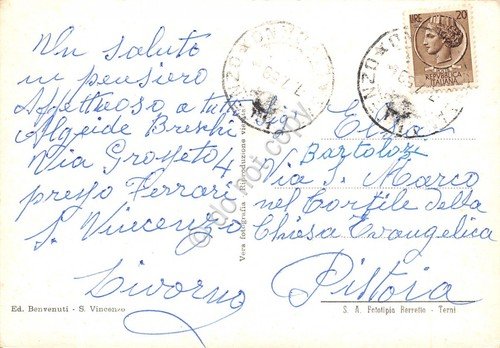 Un saluto
un pensiero
Affettuoso a tutti
Algeide Breshi
Via Grosseto 4
presso Ferrari
S. Vincenzo
Livorno
Ed. Benvenuti - S. Vincenzo
Vera fotografia - Riproduzione vietata
LIRE 20
REPUBBLICA
ITALIANA
Elia
Bartolozzi
Via S. Marco
nel Cortile della
Chiesa Evangelica
Pistoia
S. A. Fototipia Berretta - Terni